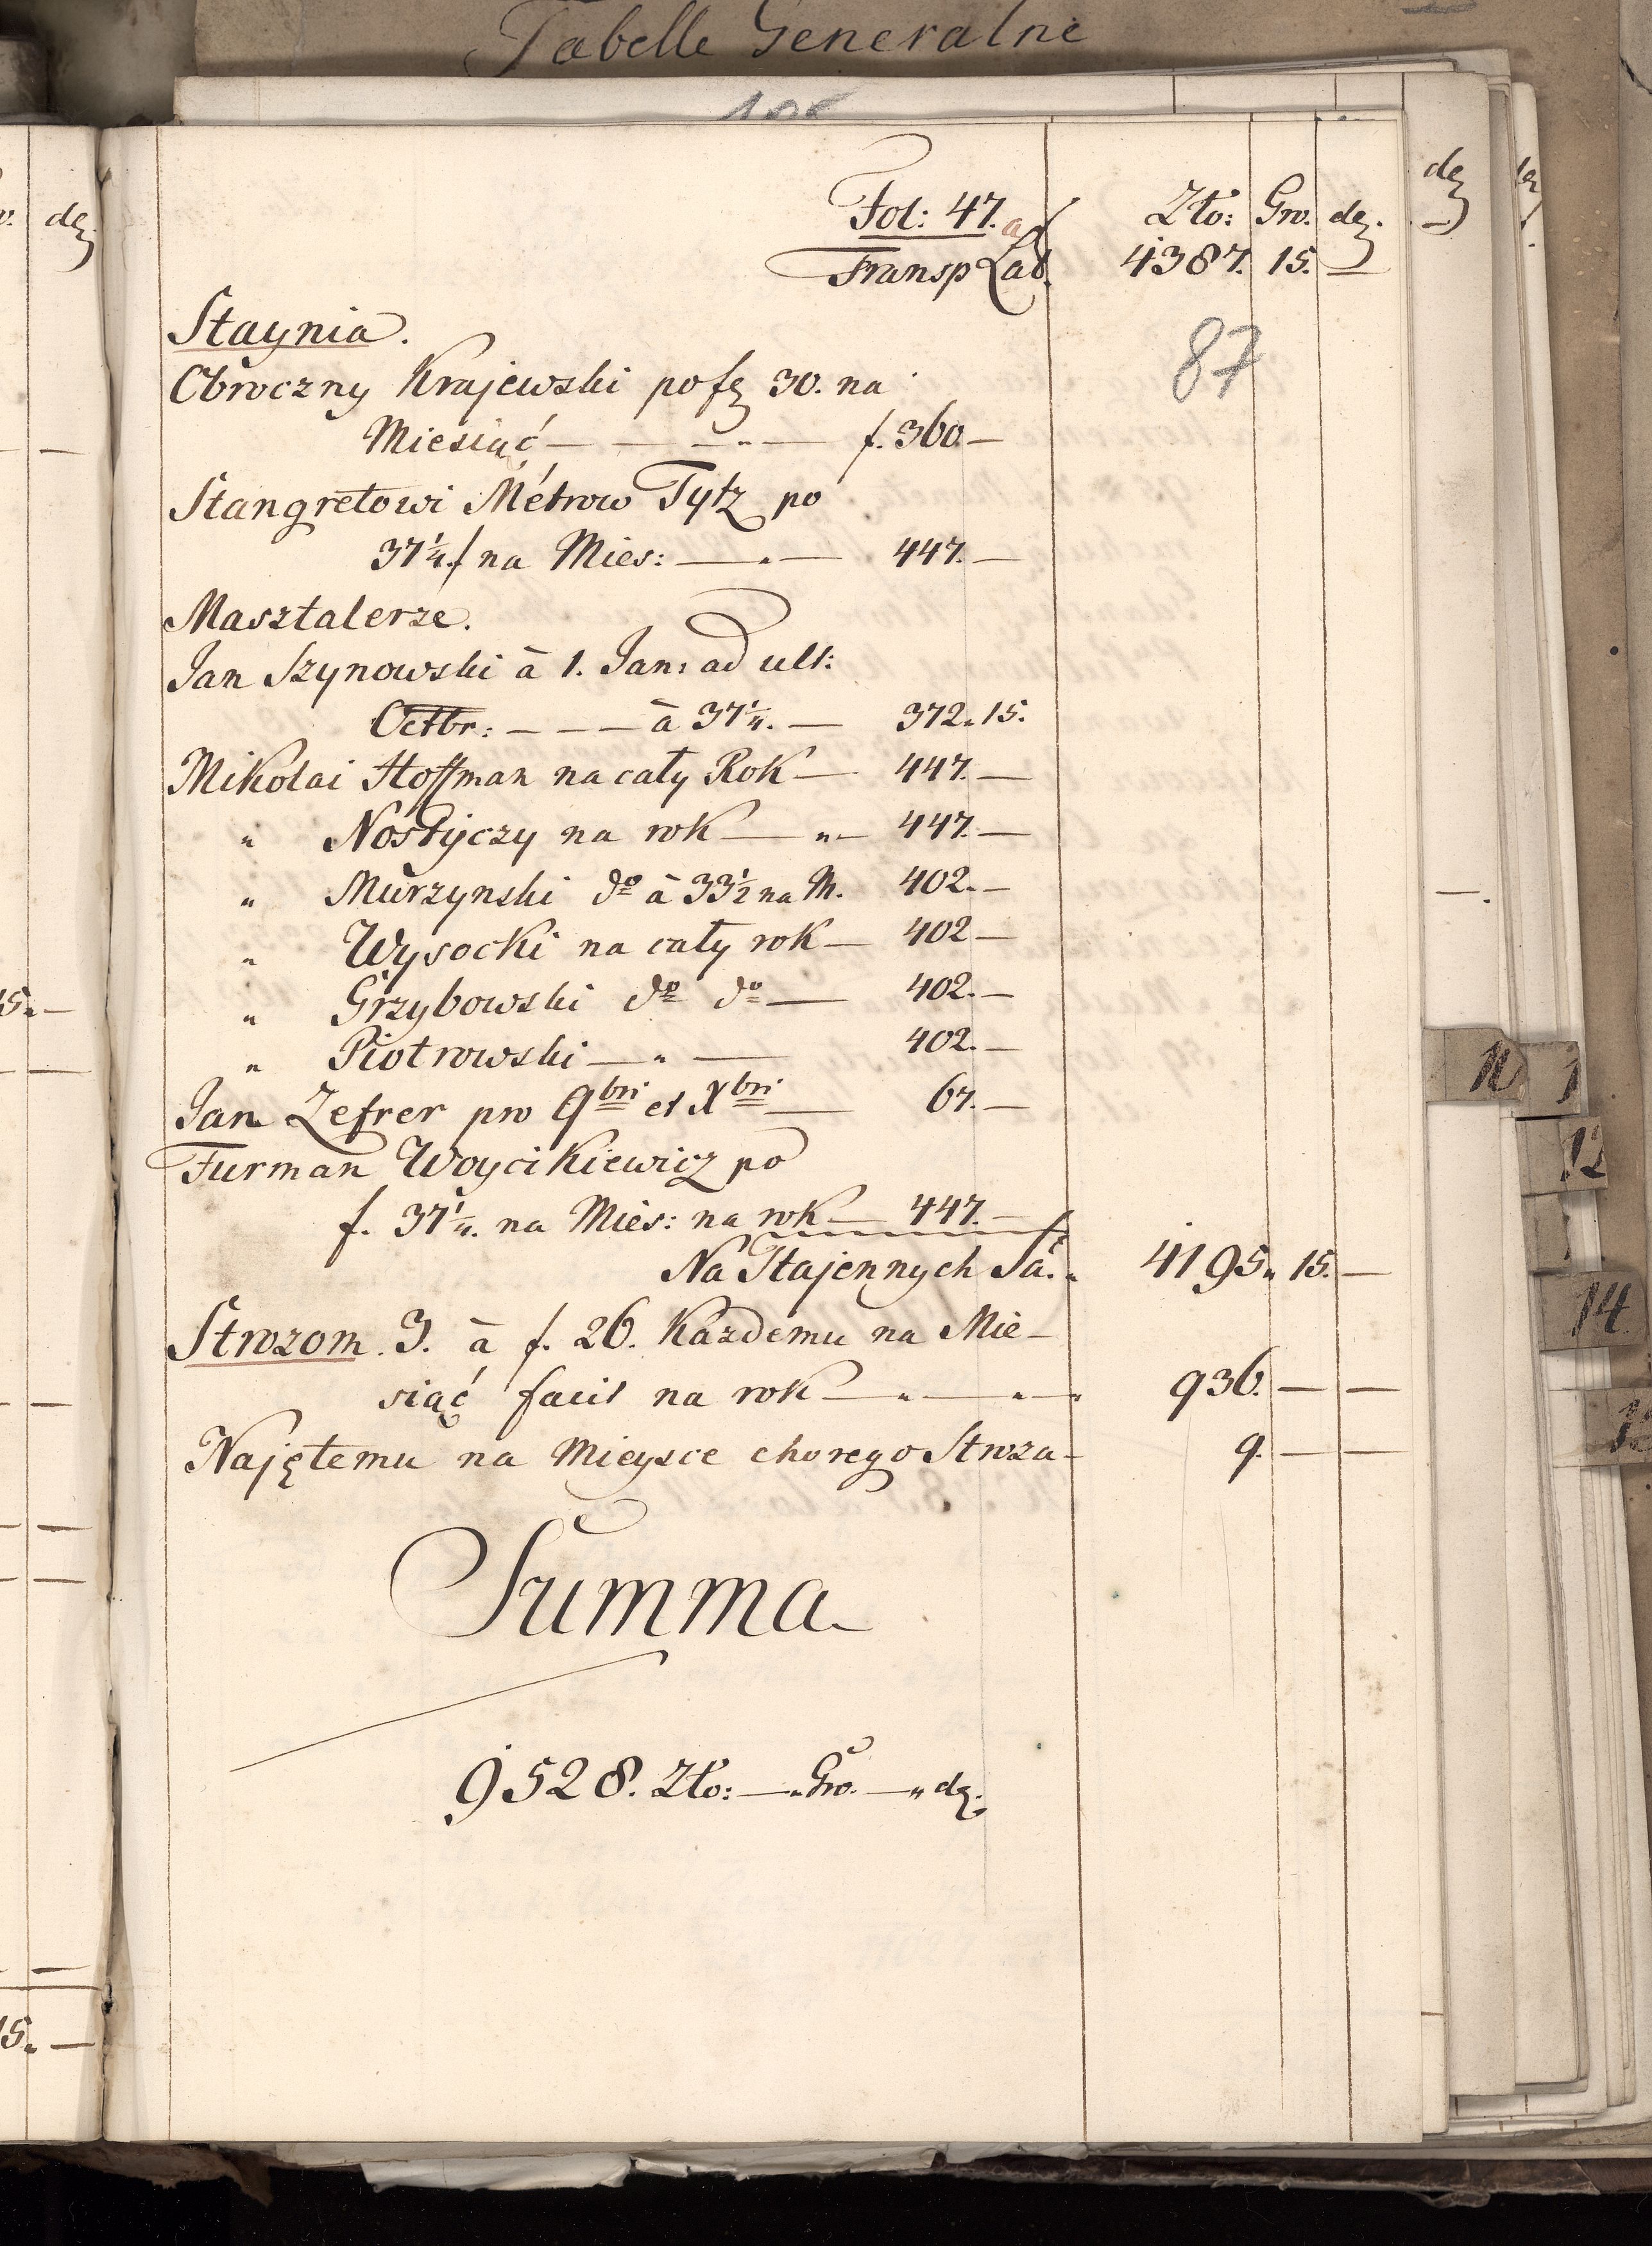 Tabelle Generalne
Fol: 47. a Zło: Gro. dz.
Transp Lat. 4387. 15. —
87
Staynia.
Obroczny Krajewski po fz 30. na
Miesiąć — — — " — f. 360 —
Stangretowi Métrow Tytz po
37¼. f na Mies: — " — 447. —
Masztalerze.
Jan Szynowski à 1. Jan: ad ult:
Octbr: — — — à 37¼. — 372 " 15.
Mikolai Hoffman na cały Rok — 447. —
" Nostÿczy na rok — " — 447. —
" Murzynski do à 33½ na M. 402. —
" Wysocki na cały rok — 402 —
" Grzybowski do do — 402. —
" Piotrowski — " — 402. —
Jan Zefrer pro 9bri et Xbri — 67. —
Furman Woycikiewicz po
f. 37¼. na Mies: na rok — 447. —
Na Stajennych Sa. " 4195 " 15. —
Strozom. 3. à f. 26. Każdemu na Mie-
siąć facit na rok — " — " — " 936. — —
Najętemu na Mieysce chorego Stroza — 9. — —
Summa
9528. Zło: — " Gro. — " dz.
dz
dz
15 " —
15 " —
11
12
14